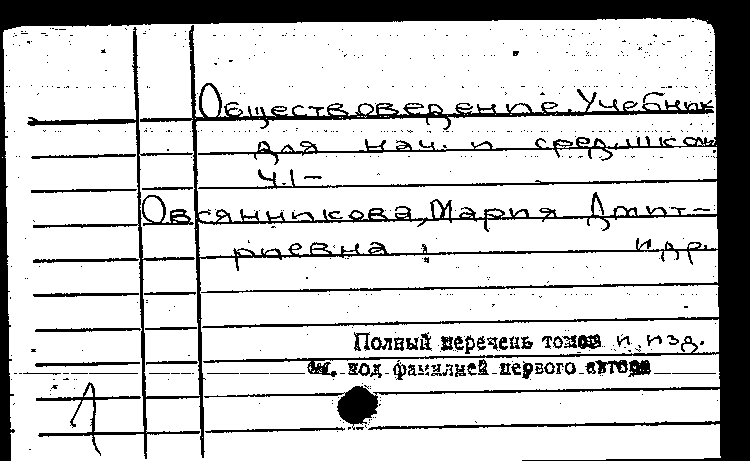 Обществоведение. Учебник
для нач. и сред. школ
Ч.1-
Овсянникова, Мария Дмит-
риевна ; и др.
Полный перечень томов и изд.
см. под фамилией первого автора
1